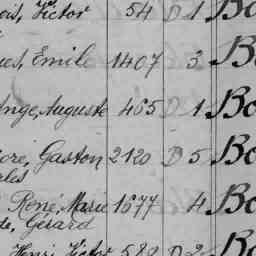 Victor 54 D 1 Bo
Emile 1407 3 B
Ange, Auguste 465 D 1 Bo
Gaston 2120 D 5 Bo
René, Marie 1677 4 B
de, Gérard
Henri, Victor 589 D 2 Bo